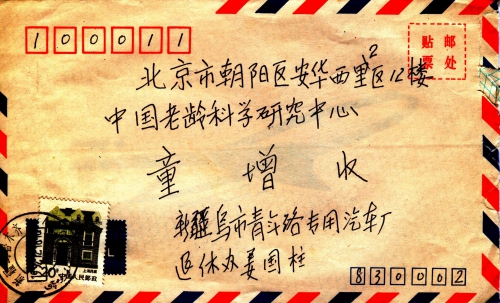 100011
贴邮
票处
北京市朝阳区安华西里2区12楼
中国老龄科学研究中心
童增收
新疆乌市青年路专用汽车厂
退休办姜国柱
20分
中国人民邮政
830002